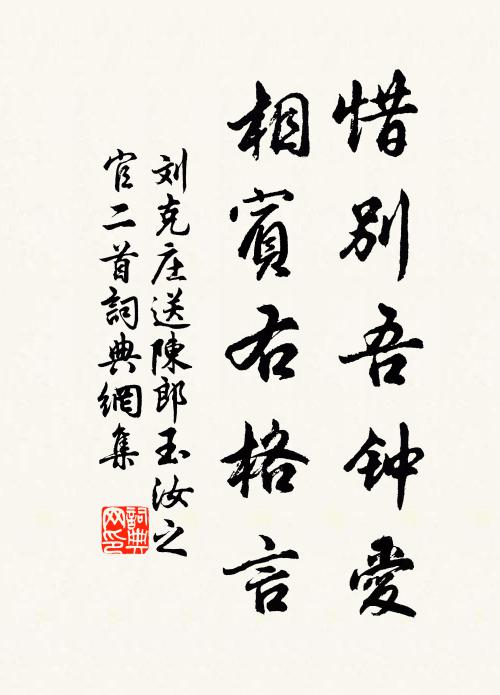 惜别吾钟愛
相賓右格言
刘克庄送陳郎玉汝之
官二首詞典網集
詞典网印